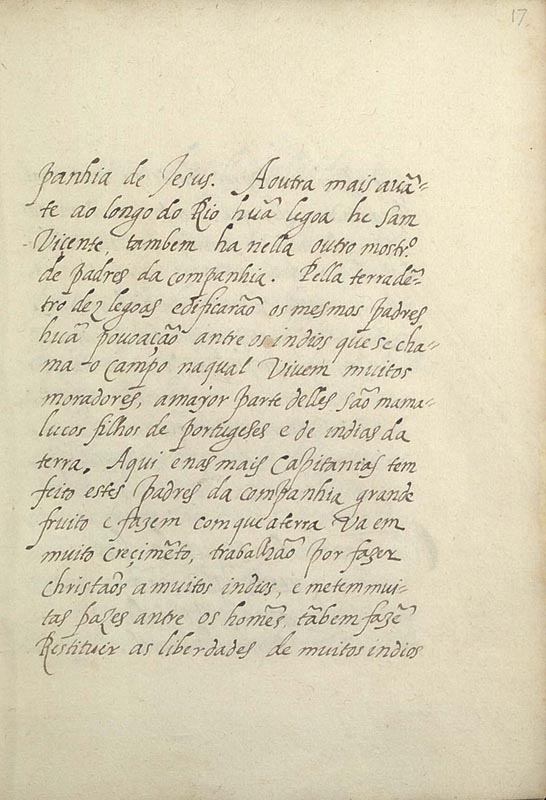 17
panhia de Jesus. Aoutra mais auã-
te ao longo do Rio hũa legoa he Sam
Vicente, tambem ha nella outro mostr.º
de padres da companhia. Pella terra dẽ-
tro dez legoas edificarão os mesmos padres
hũa pouoação antre os indios que se cha-
ma o Campo na qual Viuem muitos
moradores, a mayor parte delles são mama-
lucos filhos de portugeses e de indias da
terra. Aqui e nas mais Capitanias tem
feito estes padres da companhia grande
fruito e fazem com que a terra Va em
muito creçimẽto, trabalhão por fazer
christaõs a muitos indios, e metem mui-
tas pazes antre os homẽs, tãbem fazẽ
Restituir as liberdades de muitos indios